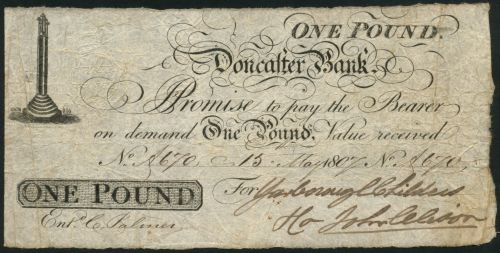 ONE POUND.
Doncaster Bank.
I Promise to pay the Bearer
on demand One Pound. Value received
No. A670, 15 May 1807 No. A670,
ONE POUND For Yarborough Childers
Entd. C. Palmer & Co John